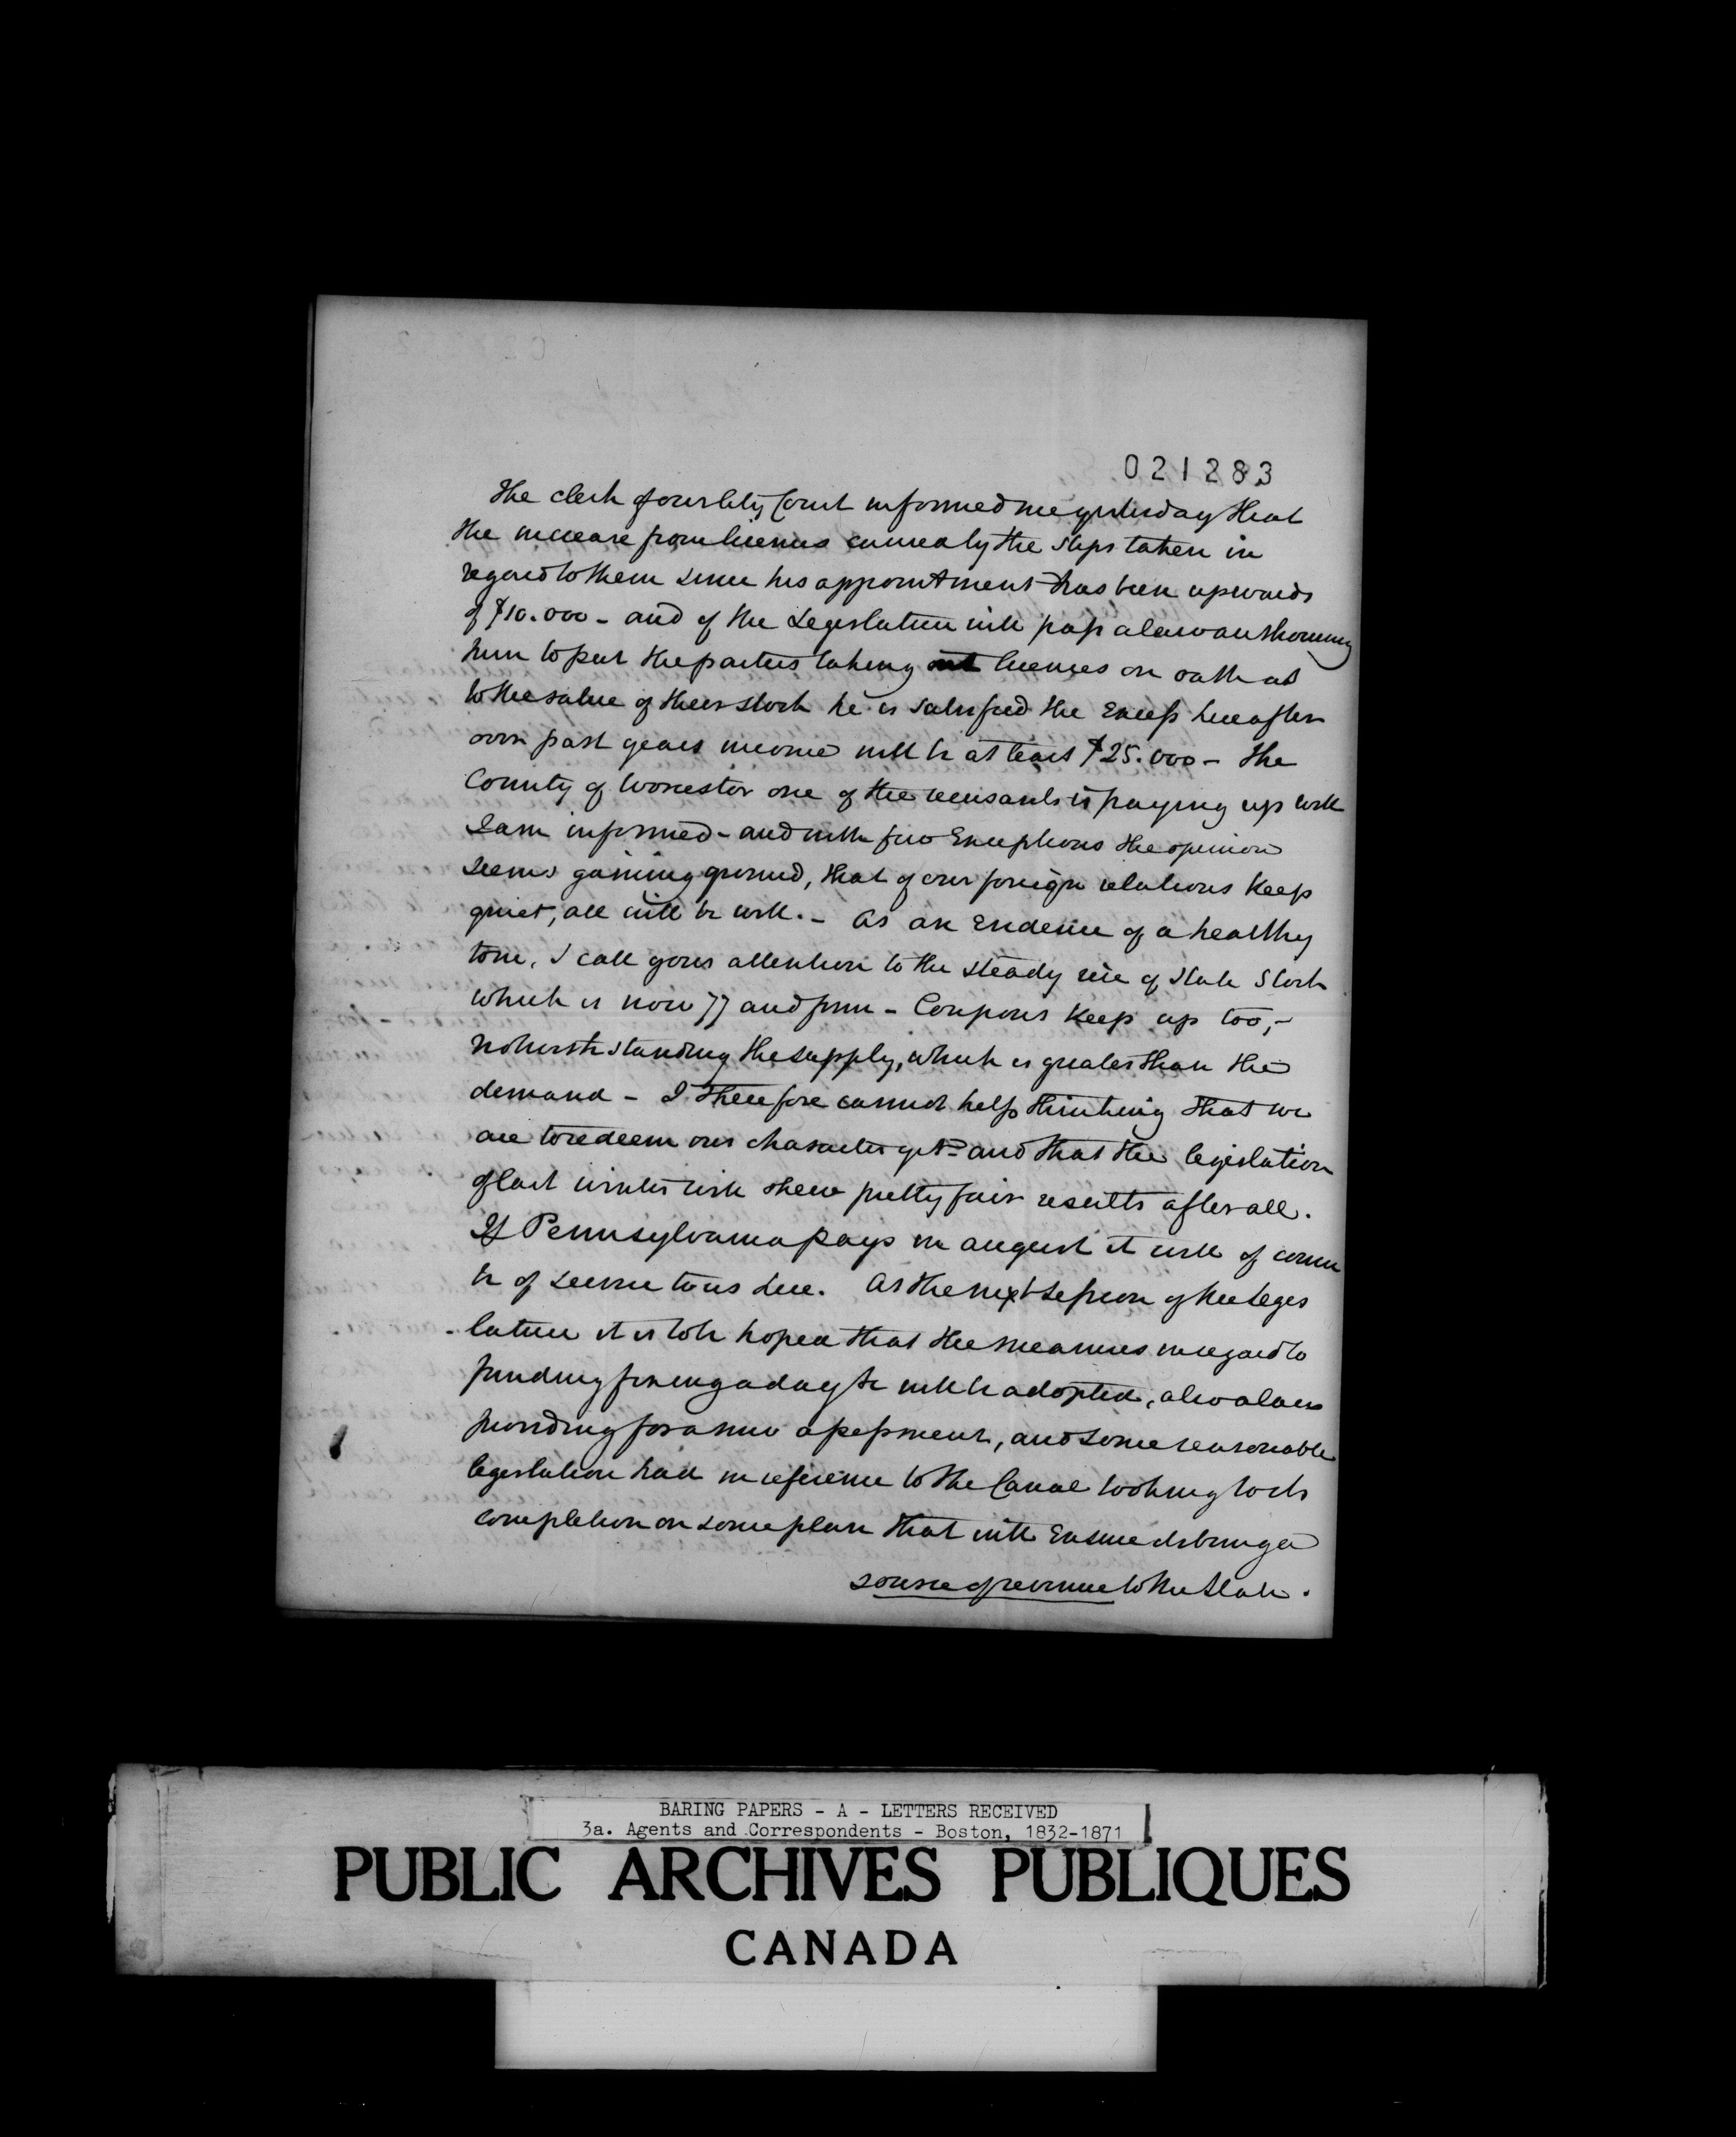 021283
The clerk of our City Court informed me yesterday that
the increase from licenses caused by the steps taken in
regard to them since his appointment has been upwards
of $10.000 - and if the Legislature will pass a law authorising
him to put the parties taking out licenses on oath as
to the value of their stock he is satisfied the Excess hereafter
over past years income will be at least $25.000 - The
County of Worcester one of the recusants is paying up well
I am informed - and with few Exceptions the opinion
seems gaining ground, that if our foreign relations Keep
quiet, all will be well. - As an Evidence of a healthy
tone, I call your attention to the steady rise of State Stock
which is now 77 and firm - Coupons Keep up too, -
Nothwithstanding the supply, which is greater than the
demand - I therefore cannot help thinking that we
are to redeem our character yet - and that the legislation
of last winter will shew pretty fair results after all.
If Pennsylvania pays in august it will of course
be of service to us here. At the next session of the Legis
-lature it is to be hoped that the measures in regard to
funding fixing a day &c will be adopted, also a law
providing for a new assessment, and some reasonable
legislation had in reference to the Canal looking to its
completion on some plan that will Ensure its being a
source of revenue to the State.
BARING PAPERS - A - LETTERS RECEIVED
3a. Agents and Correspondents - Boston, 1832-1871
PUBLIC ARCHIVES PUBLIQUES
CANADA